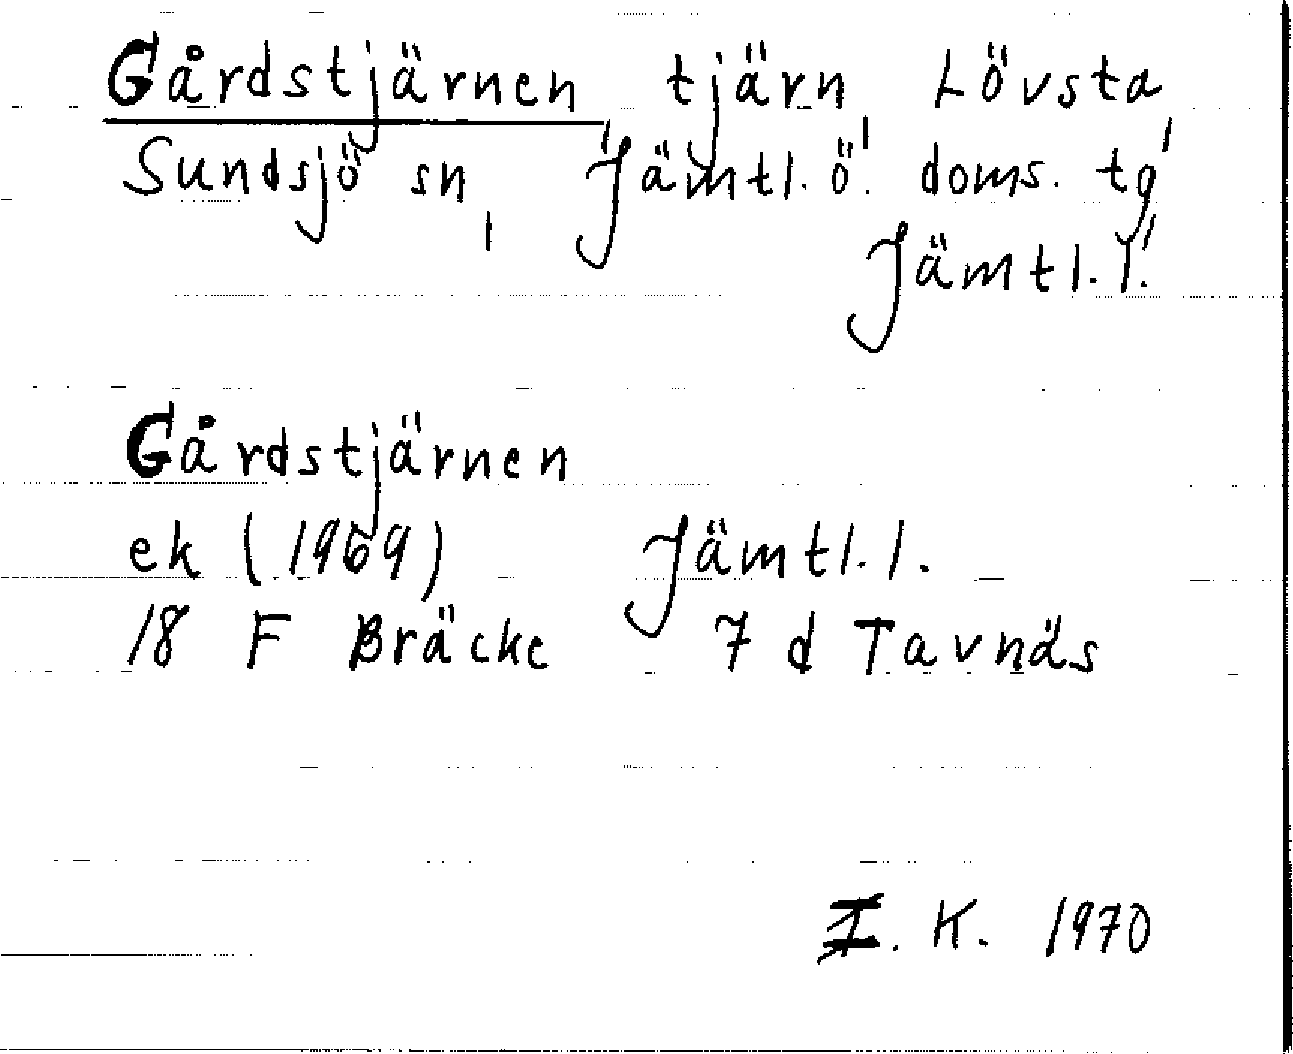 Gårdstjärnen tjärn, Lövsta,
Sundsjö sn, Jämtl. ö. doms. tg,
Jämtl. l.
Gårdstjärnen
ek (1969) Jämtl. l.
18 F Bräcke 7 d Tavnäs
I. K. 1970